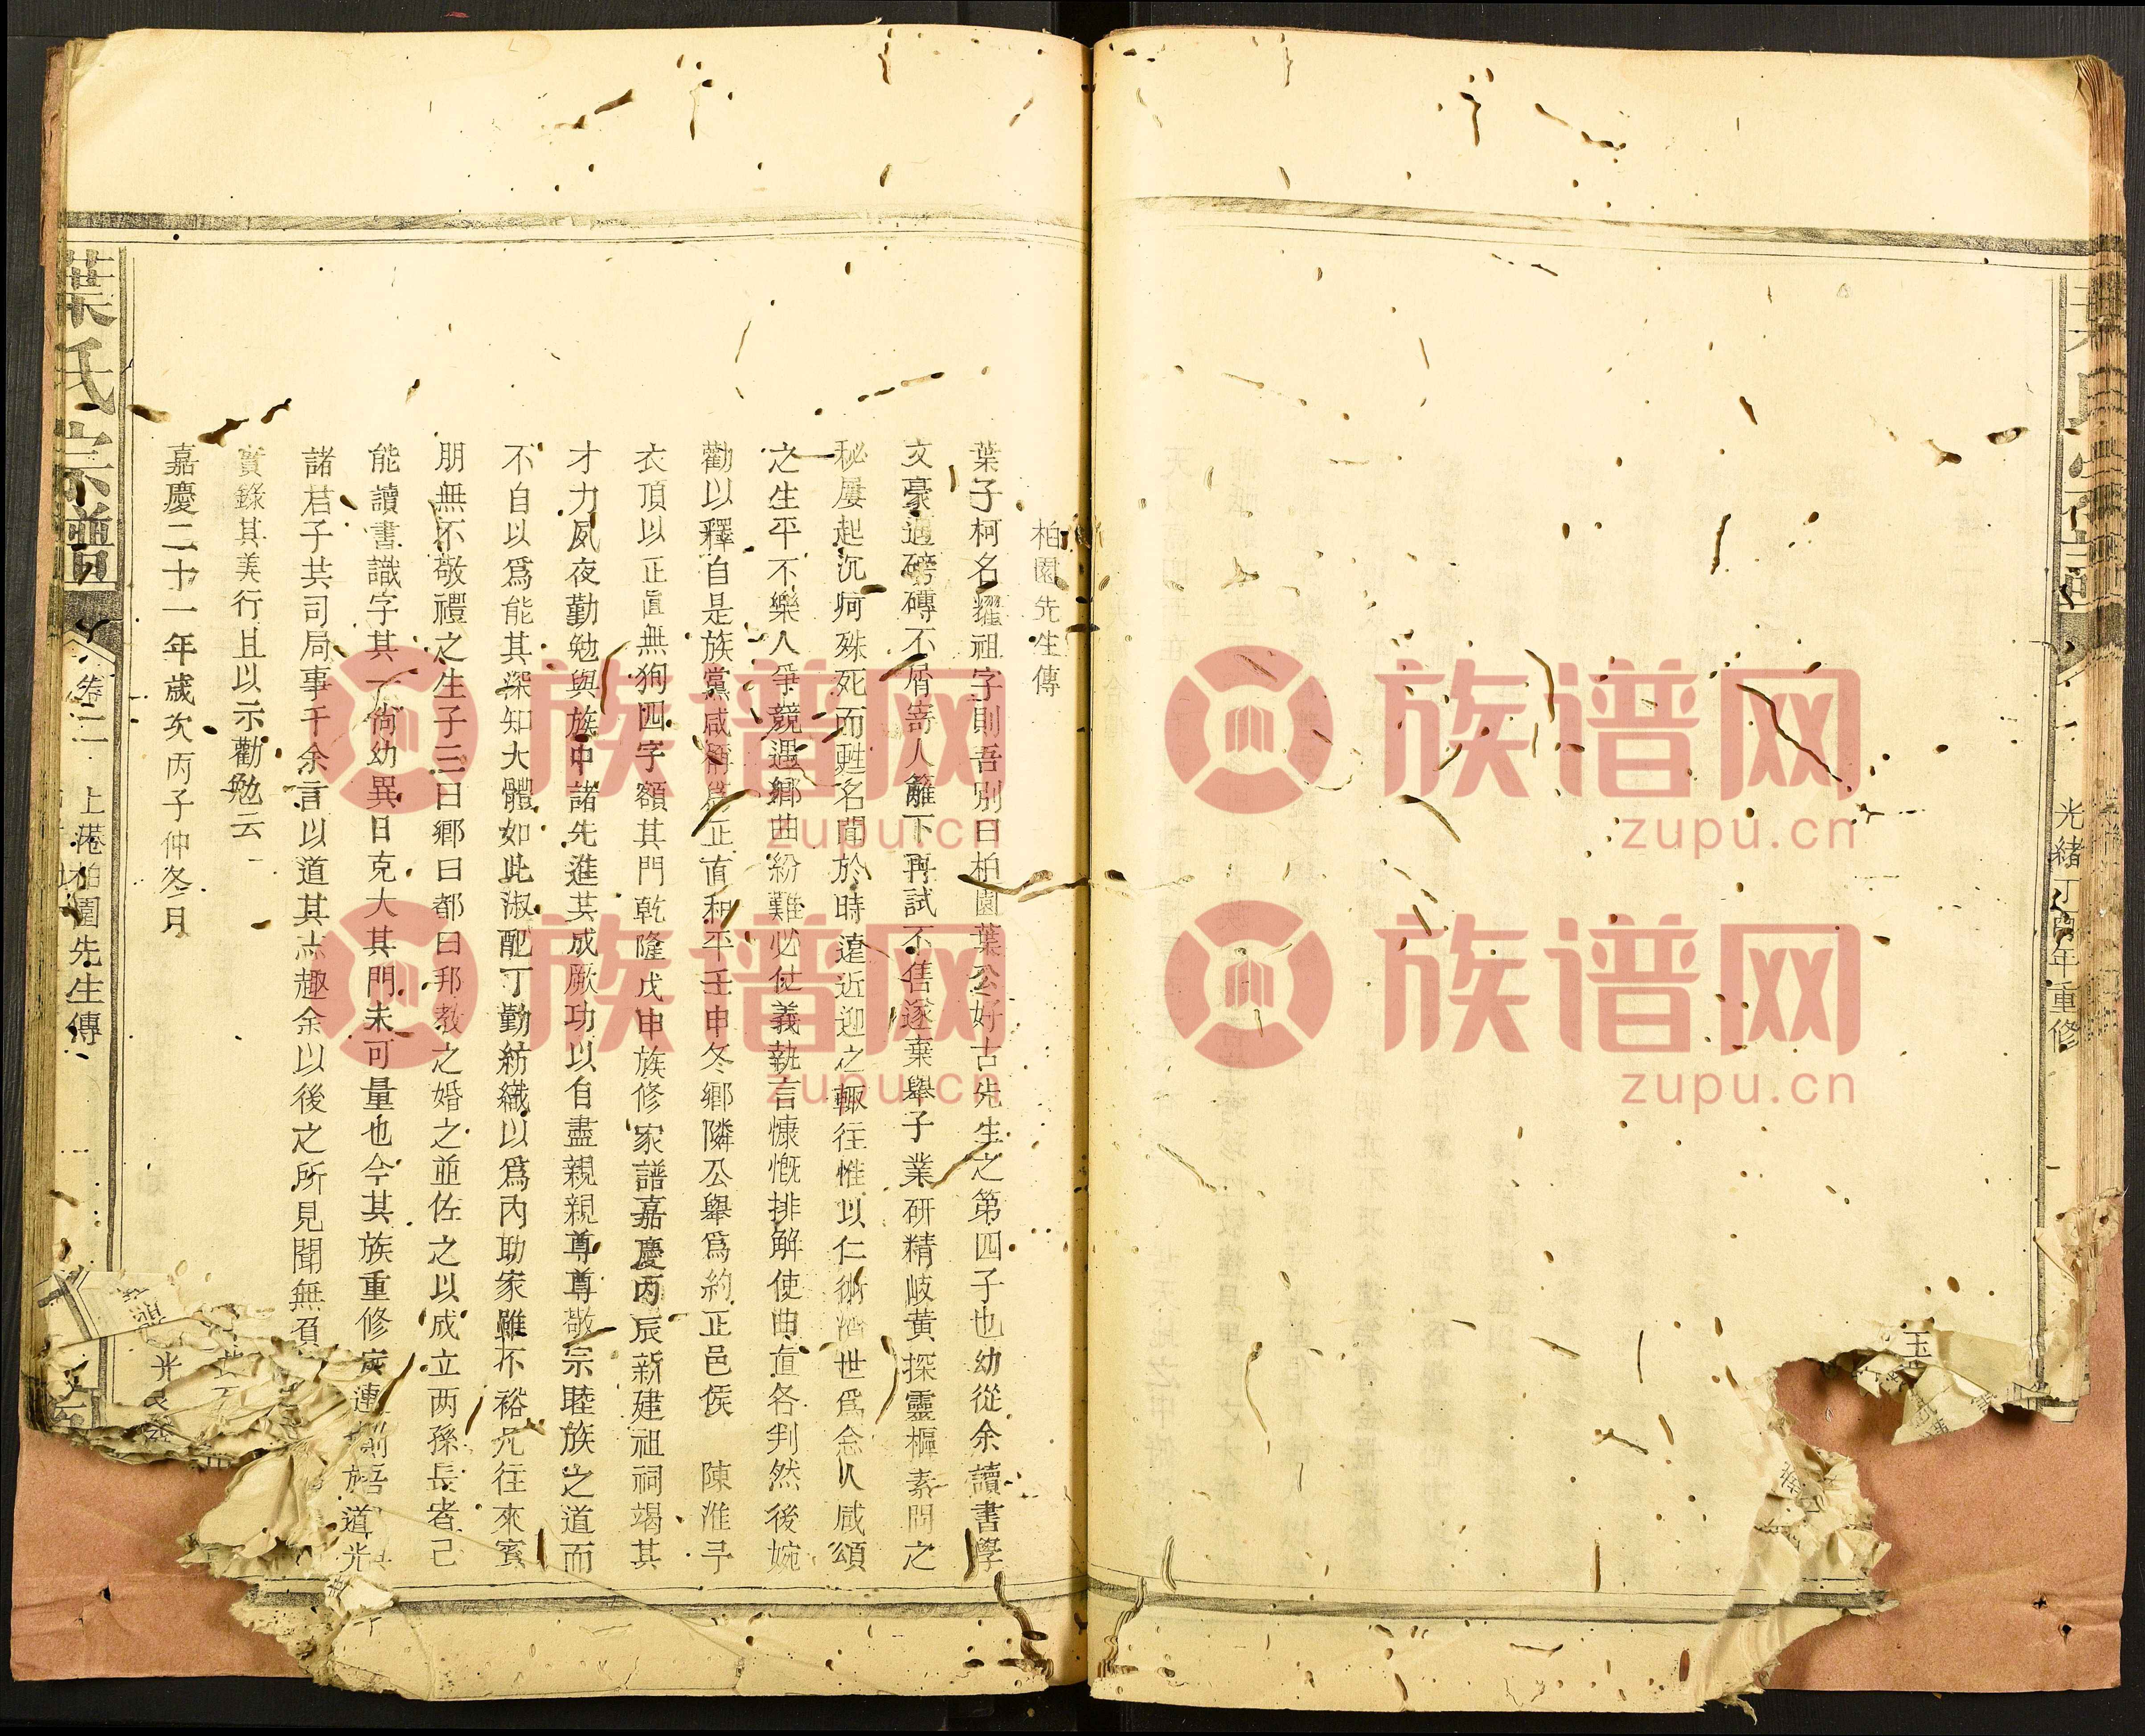 光緒丁酉年重修
柏園先生傳
葉子柯名耀祖字則吾別曰柏園葉公好古先生之第四子也幼從余讀書學
文豪邁磅礴不屑寄人籬下再試不售遂棄舉子業研精岐黃探靈樞素問之
秘屢起沉疴殊死而甦名聞於時遠近迎之輒往惟以仁術濟世爲念人咸頌
之生平不樂人爭競遇鄉曲紛難必仗義執言慷慨排解使曲直各判然後婉
勸以釋自是族黨咸稱爲正直和平壬申冬鄉隣公舉爲約正邑侯 陳淮予
衣頂以正直無狥四字額其門乾隆戊申族修家譜嘉慶丙辰新建祖祠竭其
才力夙夜勤勉與族中諸先進共成厥功以自盡親親尊尊敬宗睦族之道而
不自以爲能其深知大體如此淑配丁勤紡織以爲內助家雖不裕凡往來賓
朋無不敬禮之生子三曰鄉曰都曰邦教之婚之並佐之以成立两孫長者已
能讀書識字其一尚幼異日克大其門未可量也今其族重修
諸君子共司局事千余言以道其志趣余以後之所見聞無負
實錄其美行且以示勸勉云
嘉慶二十一年歲次丙子仲冬月
葉氏宗譜
卷二
上港柏園先生傳
族谱网
zupu.cn
族谱网
zupu.cn
族谱网
zupu.cn
族谱网
zupu.cn